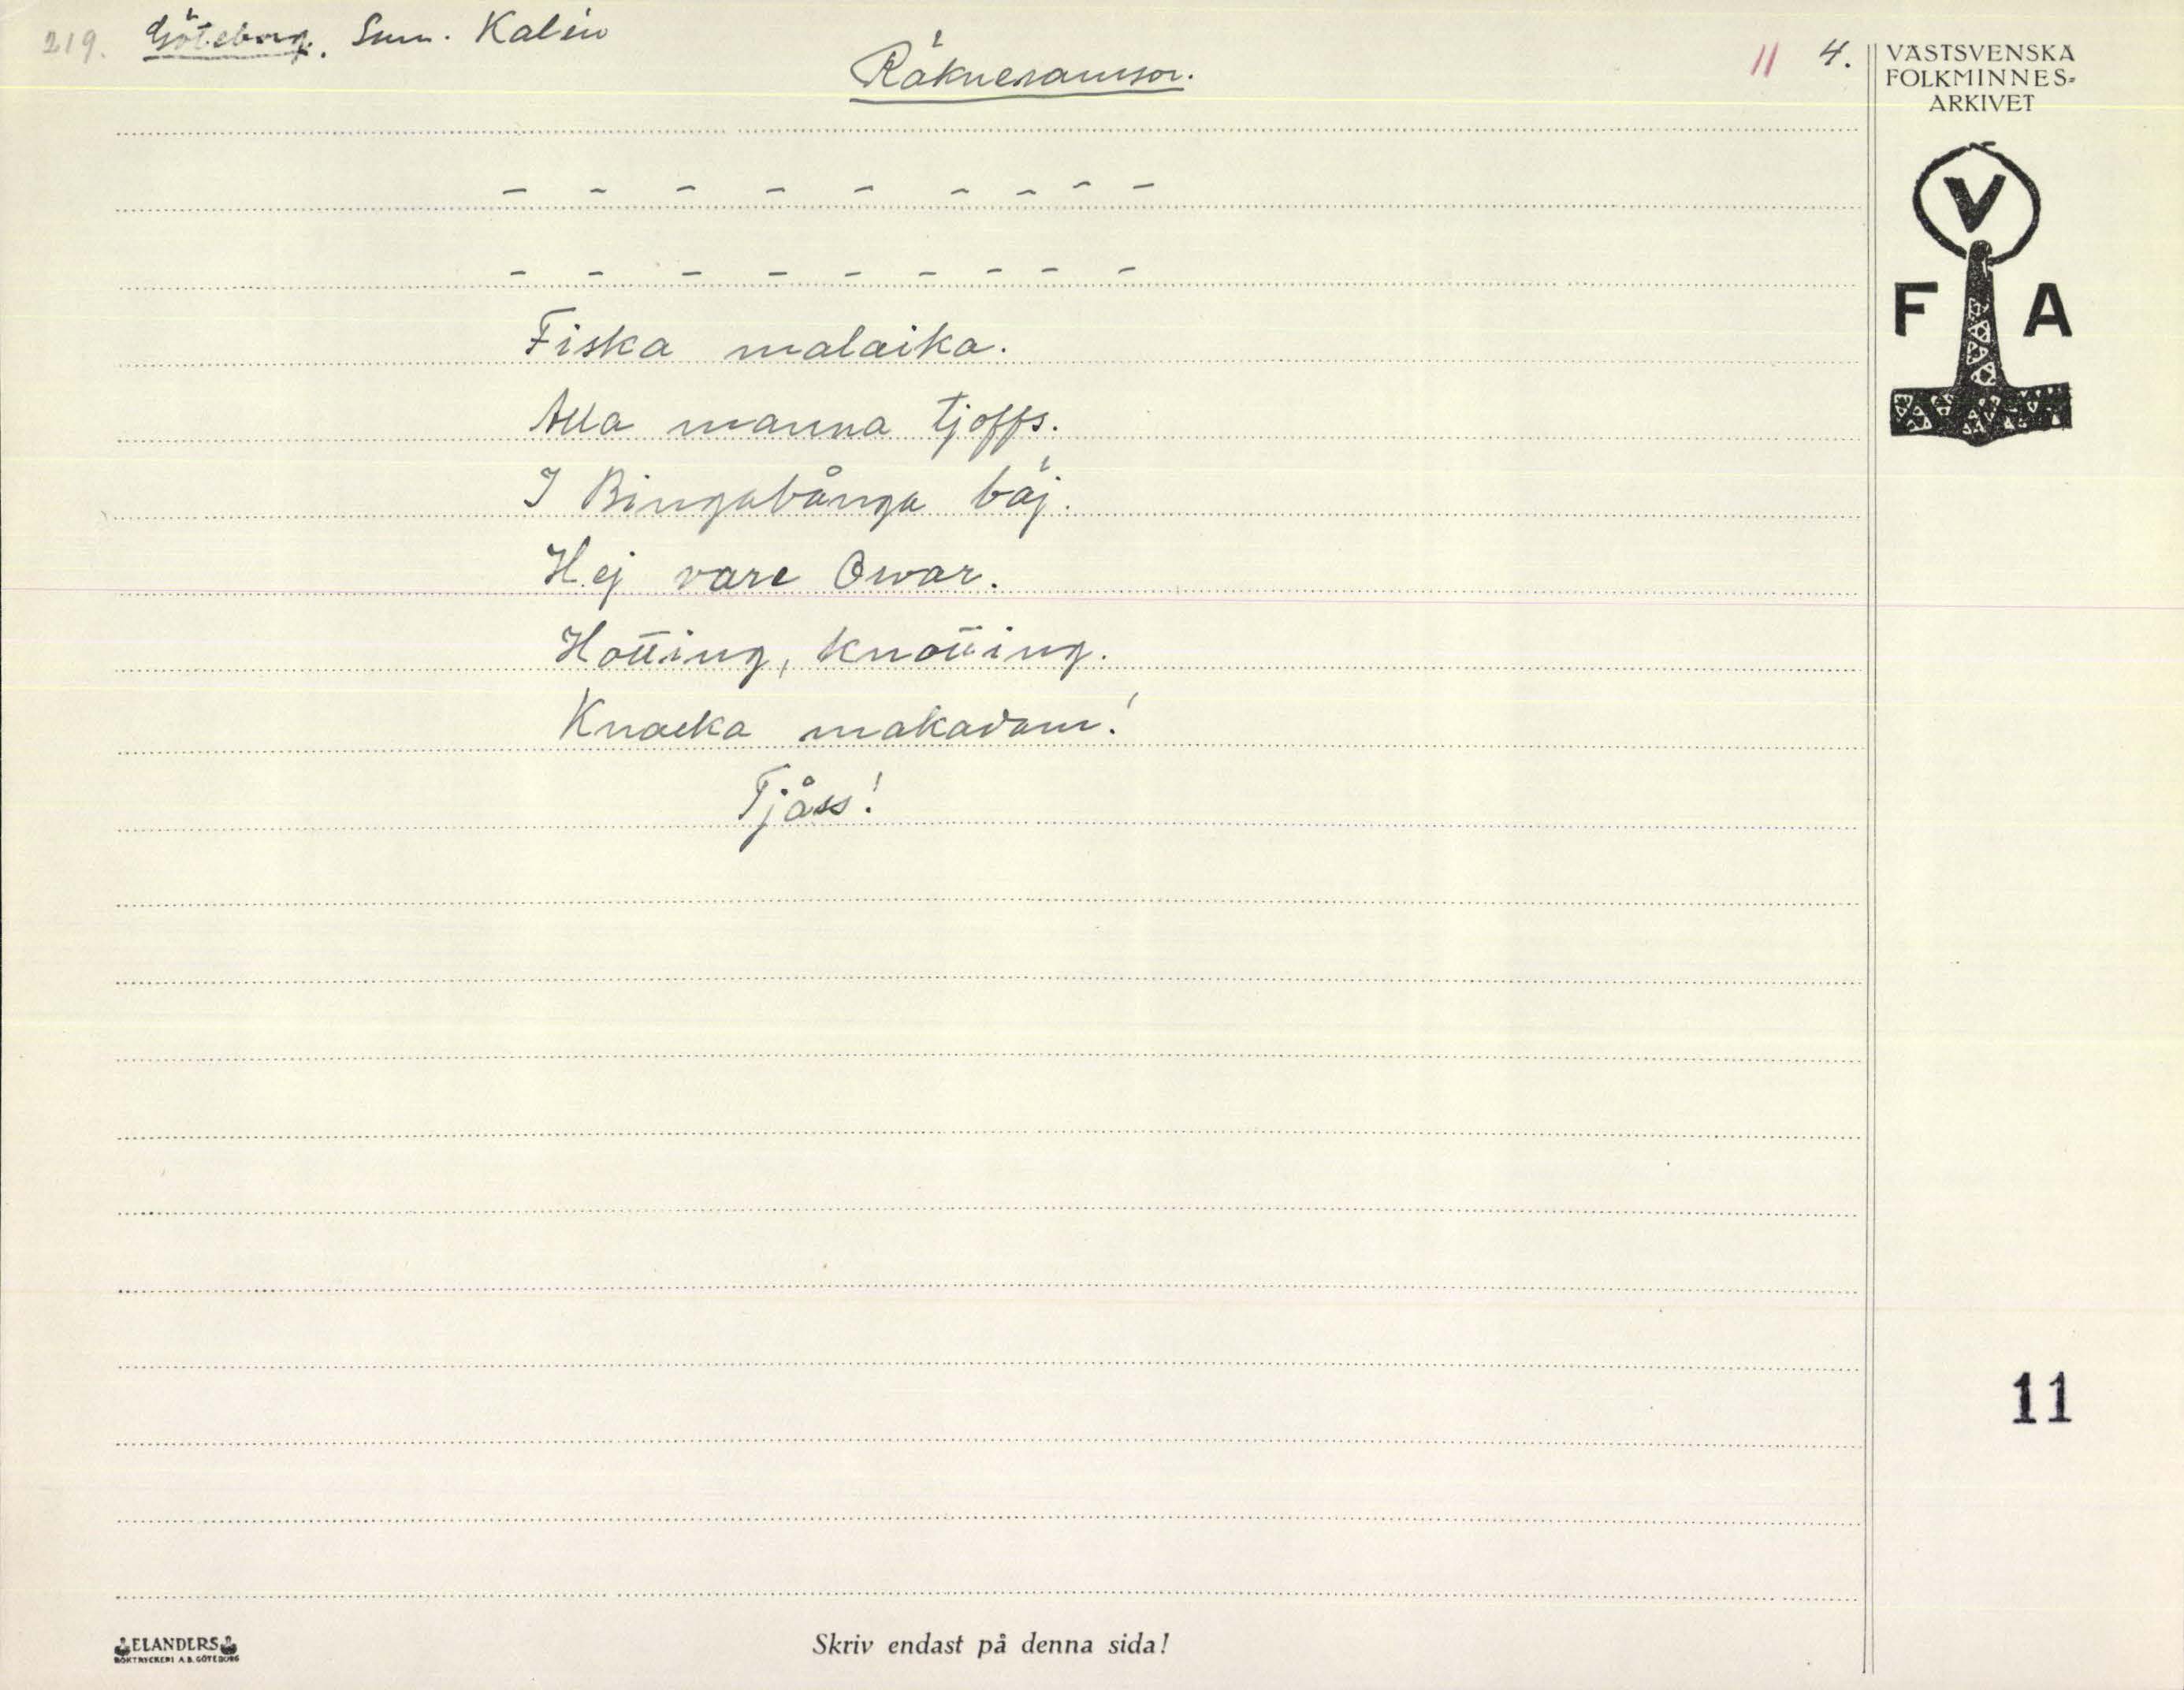 219. Göteborg. Sum. Kalén
Räkneramsor.
11 4.
VÄSTSVENSKA
FOLKMINNES-
ARKIVET
V
F A
- - - - - - - - -
- - - - - - - - -
Fiska malaika.
Alla manna tjoffs.
I Bingabånga bäj.
Hej vare Owar.
Hotting, knotting.
Knacka makadam!
Tjåss!
11
ELANDERS
BOKTRYCKERI A.B. GÖTEBORG
Skriv endast på denna sida!